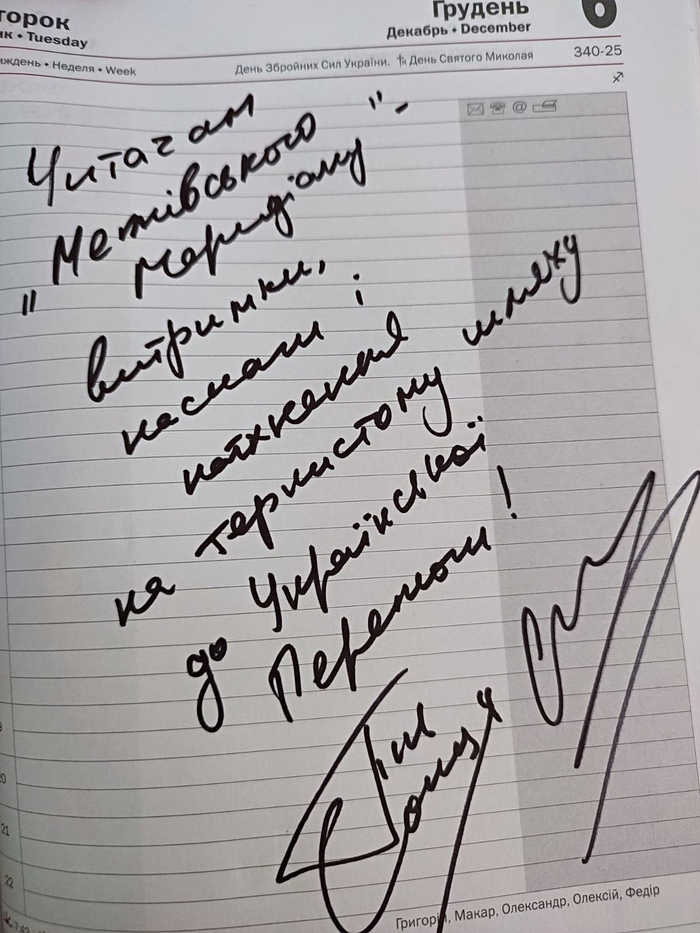 торок
Грудень
6
ик • Tuesday
Декабрь • December
иждень • Неделя • Week
День Збройних Сил України.
День Святого Миколая
340-25
Читачам
"Межівського
меридіану"-
витримки,
наснаги і
натхнення
на тернистому шляху
до Української
Перемоги!
21
22
Григорій, Макар, Олександр, Олексій, Федір